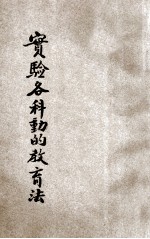 實驗各科動的教育法